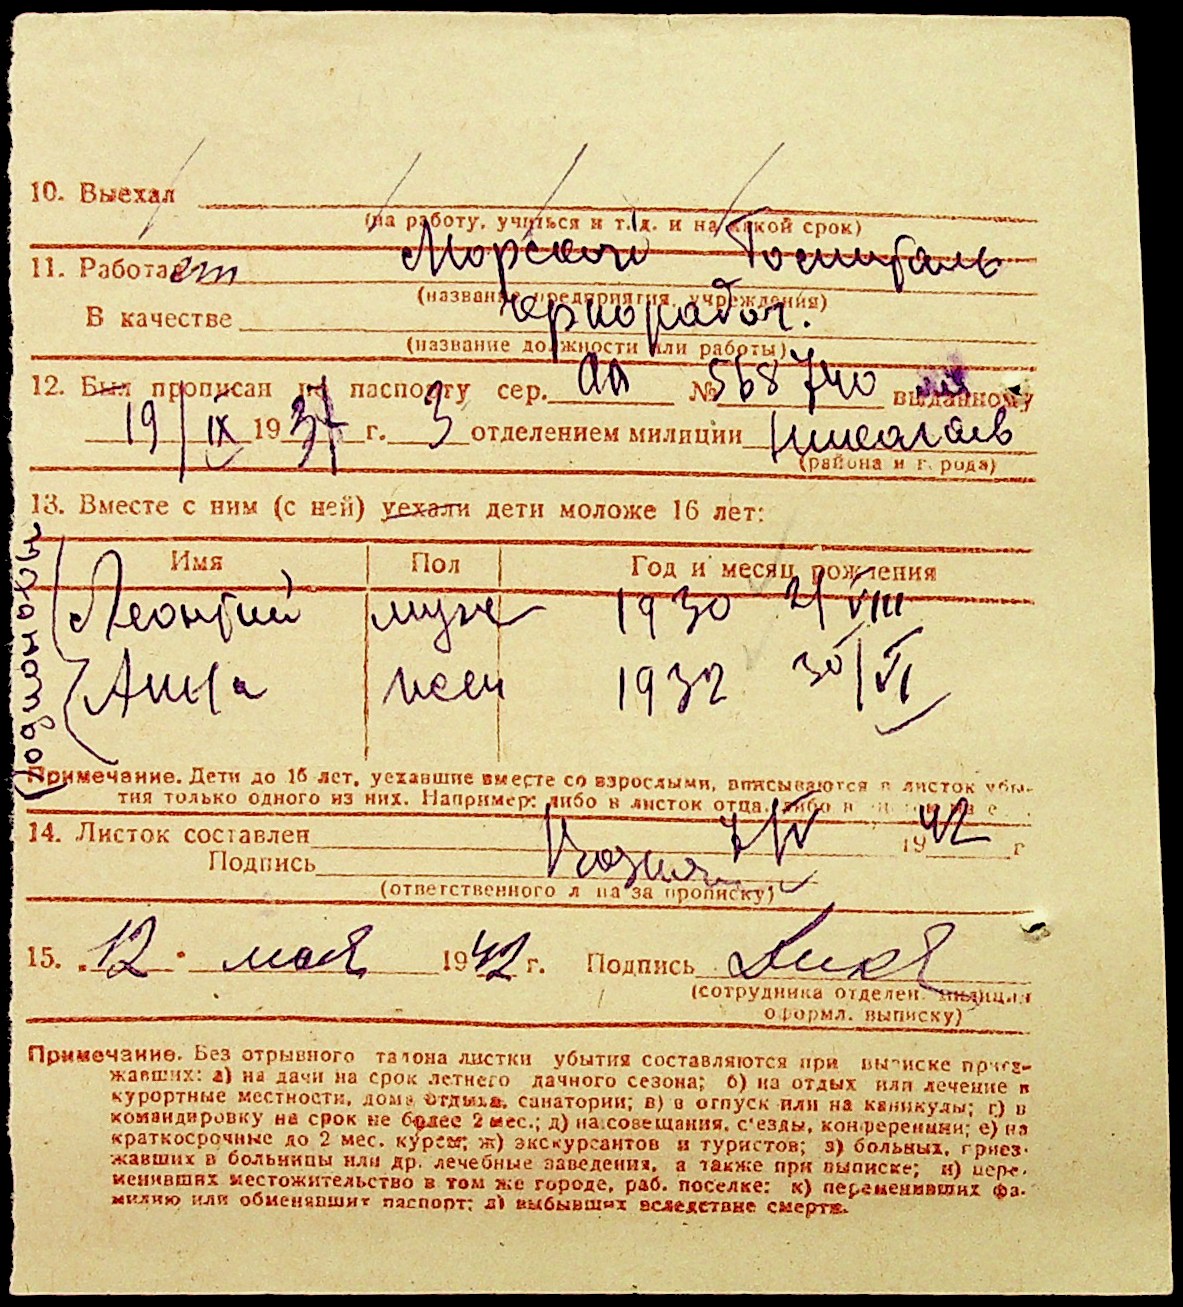 10. Выехал
(на работу, учиться и т. д. и на какой срок)
11. Работает Морской Госпиталь
(название предприятия, учреждения)
В качестве чернорабоч.
(название должности или работы)
12. Был прописан по паспорту сер. АА № 568740 выданному
19/IX 1937 г. 3 отделением милиции Николаев
(района и города)
13. Вместе с ним (с ней) уехали дети моложе 16 лет:
Имя Пол Год и месяц рождения
Родионовы
Леонтий муж 1930 21/VIII
Анна жен 1932 30/VI
Примечание. Дети до 16 лет, уехавшие вместе со взрослыми, вписываются в листок убы-
тия только одного из них. Например: либо в листок отца, либо в
14. Листок составлен 7/IV 1942 г
Подпись
(ответственного лица за прописку)
15. „12“ мая 1942 г. Подпись
(сотрудника отделен. милиции
оформл. выписку)
Примечание. Без отрывного талона листки убытия составляются при выписке приез-
жавших: а) на дачи на срок летнего дачного сезона; б) на отдых или лечение в
курортные местности, дома отдыха, санатории; в) в отпуск или на каникулы; г) в
командировку на срок не более 2 мес.; д) на совещания, с'езды, конференции; е) на
краткосрочные до 2 мес. курсы; ж) экскурсантов и туристов; з) больных, приез-
жавших в больницы или др. лечебные заведения, а также при выписке; и) пере-
менивших местожительство в том же городе, раб. поселке; к) переменивших фа-
милию или обменявших паспорт; л) выбывших вследствие смерти.